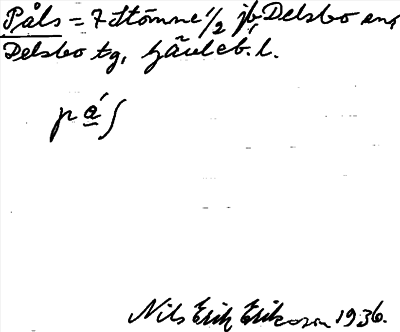 Påls = 7 Stömne 1/2 jb Delsbo sn,
Delsbo tg, Gävleb. l.
pa̲ʃ
Nils Erik Eriksson 1936.